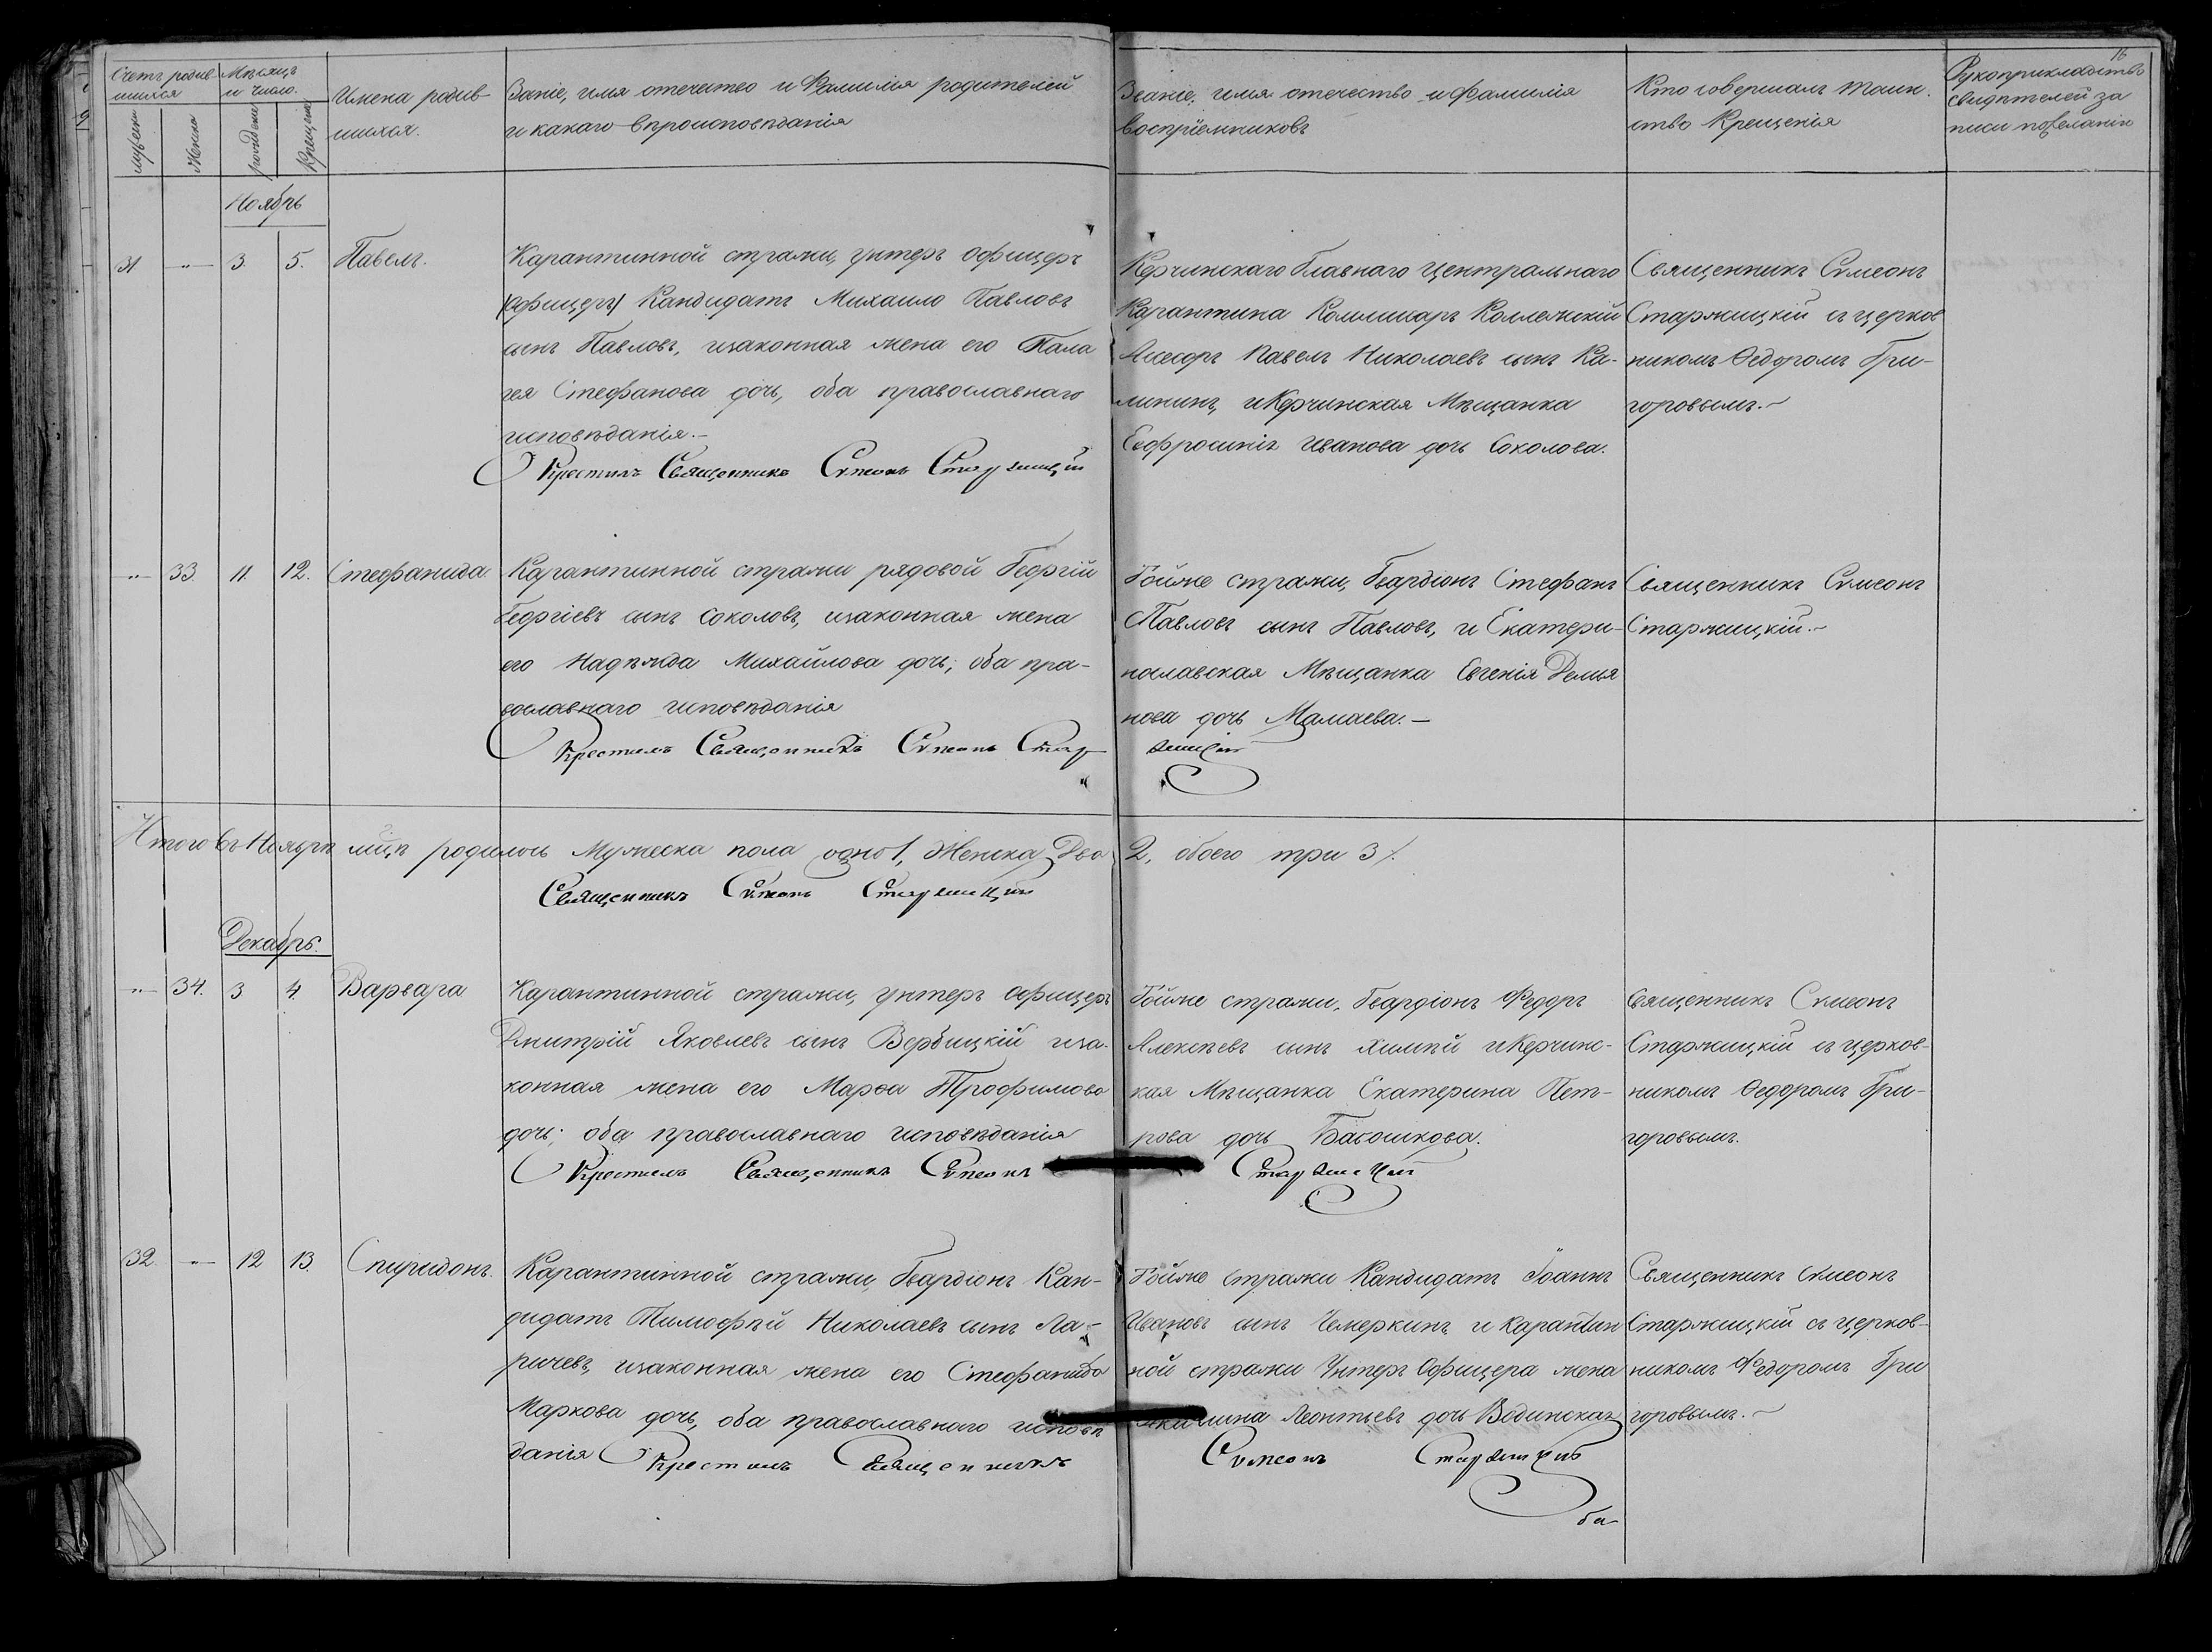 16
Счетъ родив-
шихся
Мѣсяцъ
и число.
мужеска
Женска
рожденія
Крещенія
Имена родив-
шихся.
Званіе, имя отечество и Фамилія родителей
и какаго вѣроисповѣданія
Званіе, имя отечество и фамилія
воспріемниковъ
Кто совершалъ таин-
ство Крещенія
Рукоприкладство
свидѣтелей за
писи по желанію
Ноябрь
31 —"— 3. 5. Павелъ.
Карантинной стражи, унтеръ офицеръ
(офицеръ) Кандидатъ Михаило Павловъ
сынъ Павловъ, изаконная жена его Пала
гея Стефанова дочь, оба православнаго
исповѣданія.–
Крестилъ Священникъ Симеонъ Старжицкій
Керчинскаго Главнаго Центральнаго
Карантина Коммисаръ Коллежскій
Ассесоръ Павелъ Николаевъ сынъ Ка-
лининъ, и Керчинская Мѣщанка
Евфросинія Иванова дочь Соколова.
Священникъ Симеонъ
Старжицкій съ церков
никомъ Ѳедоромъ Гри-
горовымъ.~
—"— 33. 11. 12. Стефанида.
Карантинной стражи рядовой Георгій
Георгіевъ сынъ Соколовъ, изаконная жена
его Надѣжда Михайлова дочь; оба пра-
вославнаго исповѣданія
Крестилъ Священникъ Симеонъ Стар
жицкій
Тойже стражи, Гвардіонъ Стефанъ
Павловъ сынъ Павловъ, и Екатери-
нославская Мѣщанка Евгенія Демья
нова дочь Мамаева.–
Священникъ Симеонъ
Старжицкій.~
Итого въ Ноябрѣ мцѣ родилось Мужеска пола одно 1, Женска Два 2, обоего три 3/.
Священникъ Симеонъ Старжицкій
Декабрь.
—"— 34. 3 4. Варвара
Карантинной стражи, унтеръ офицеръ
Дмитрій Яковлевъ сынъ Вербицкій иза-
конная жена его Марѳа Трофимова
дочь; оба православнаго исповѣданія
Крестилъ Священникъ Симеонъ Старжицкій
Тойже стражи, Гвардіонъ Федоръ
Алексѣевъ сынъ и Керчинс-
кая Мѣщанка Екатерина Пет-
рова дочь Башошкова.
Священникъ Симеонъ
Старжицкій съ церков-
никомъ Ѳедоромъ Гри-
горовымъ.
32. —"— 12 13. Спиридонъ.
Карантинной стражи, Гвардіонъ Кан-
дидатъ Тимофѣй Николаевъ сынъ Ла-
ричевъ, изаконная жена его Стефанида
Маркова дочь, оба православнаго исповѣ
данія Крестилъ Священникъ
Тойже стражи Кандидатъ Іоаннъ
Ивановъ сынъ Чемеркинъ и Карантин
ной стражи Унтеръ Офицера жена
Акилина Леонтьевъ дочь Водинская
Симеонъ Старжицкій
Священникъ Симеонъ
Старжицкій съ церков-
никомъ Федоромъ Гри
горовымъ.~